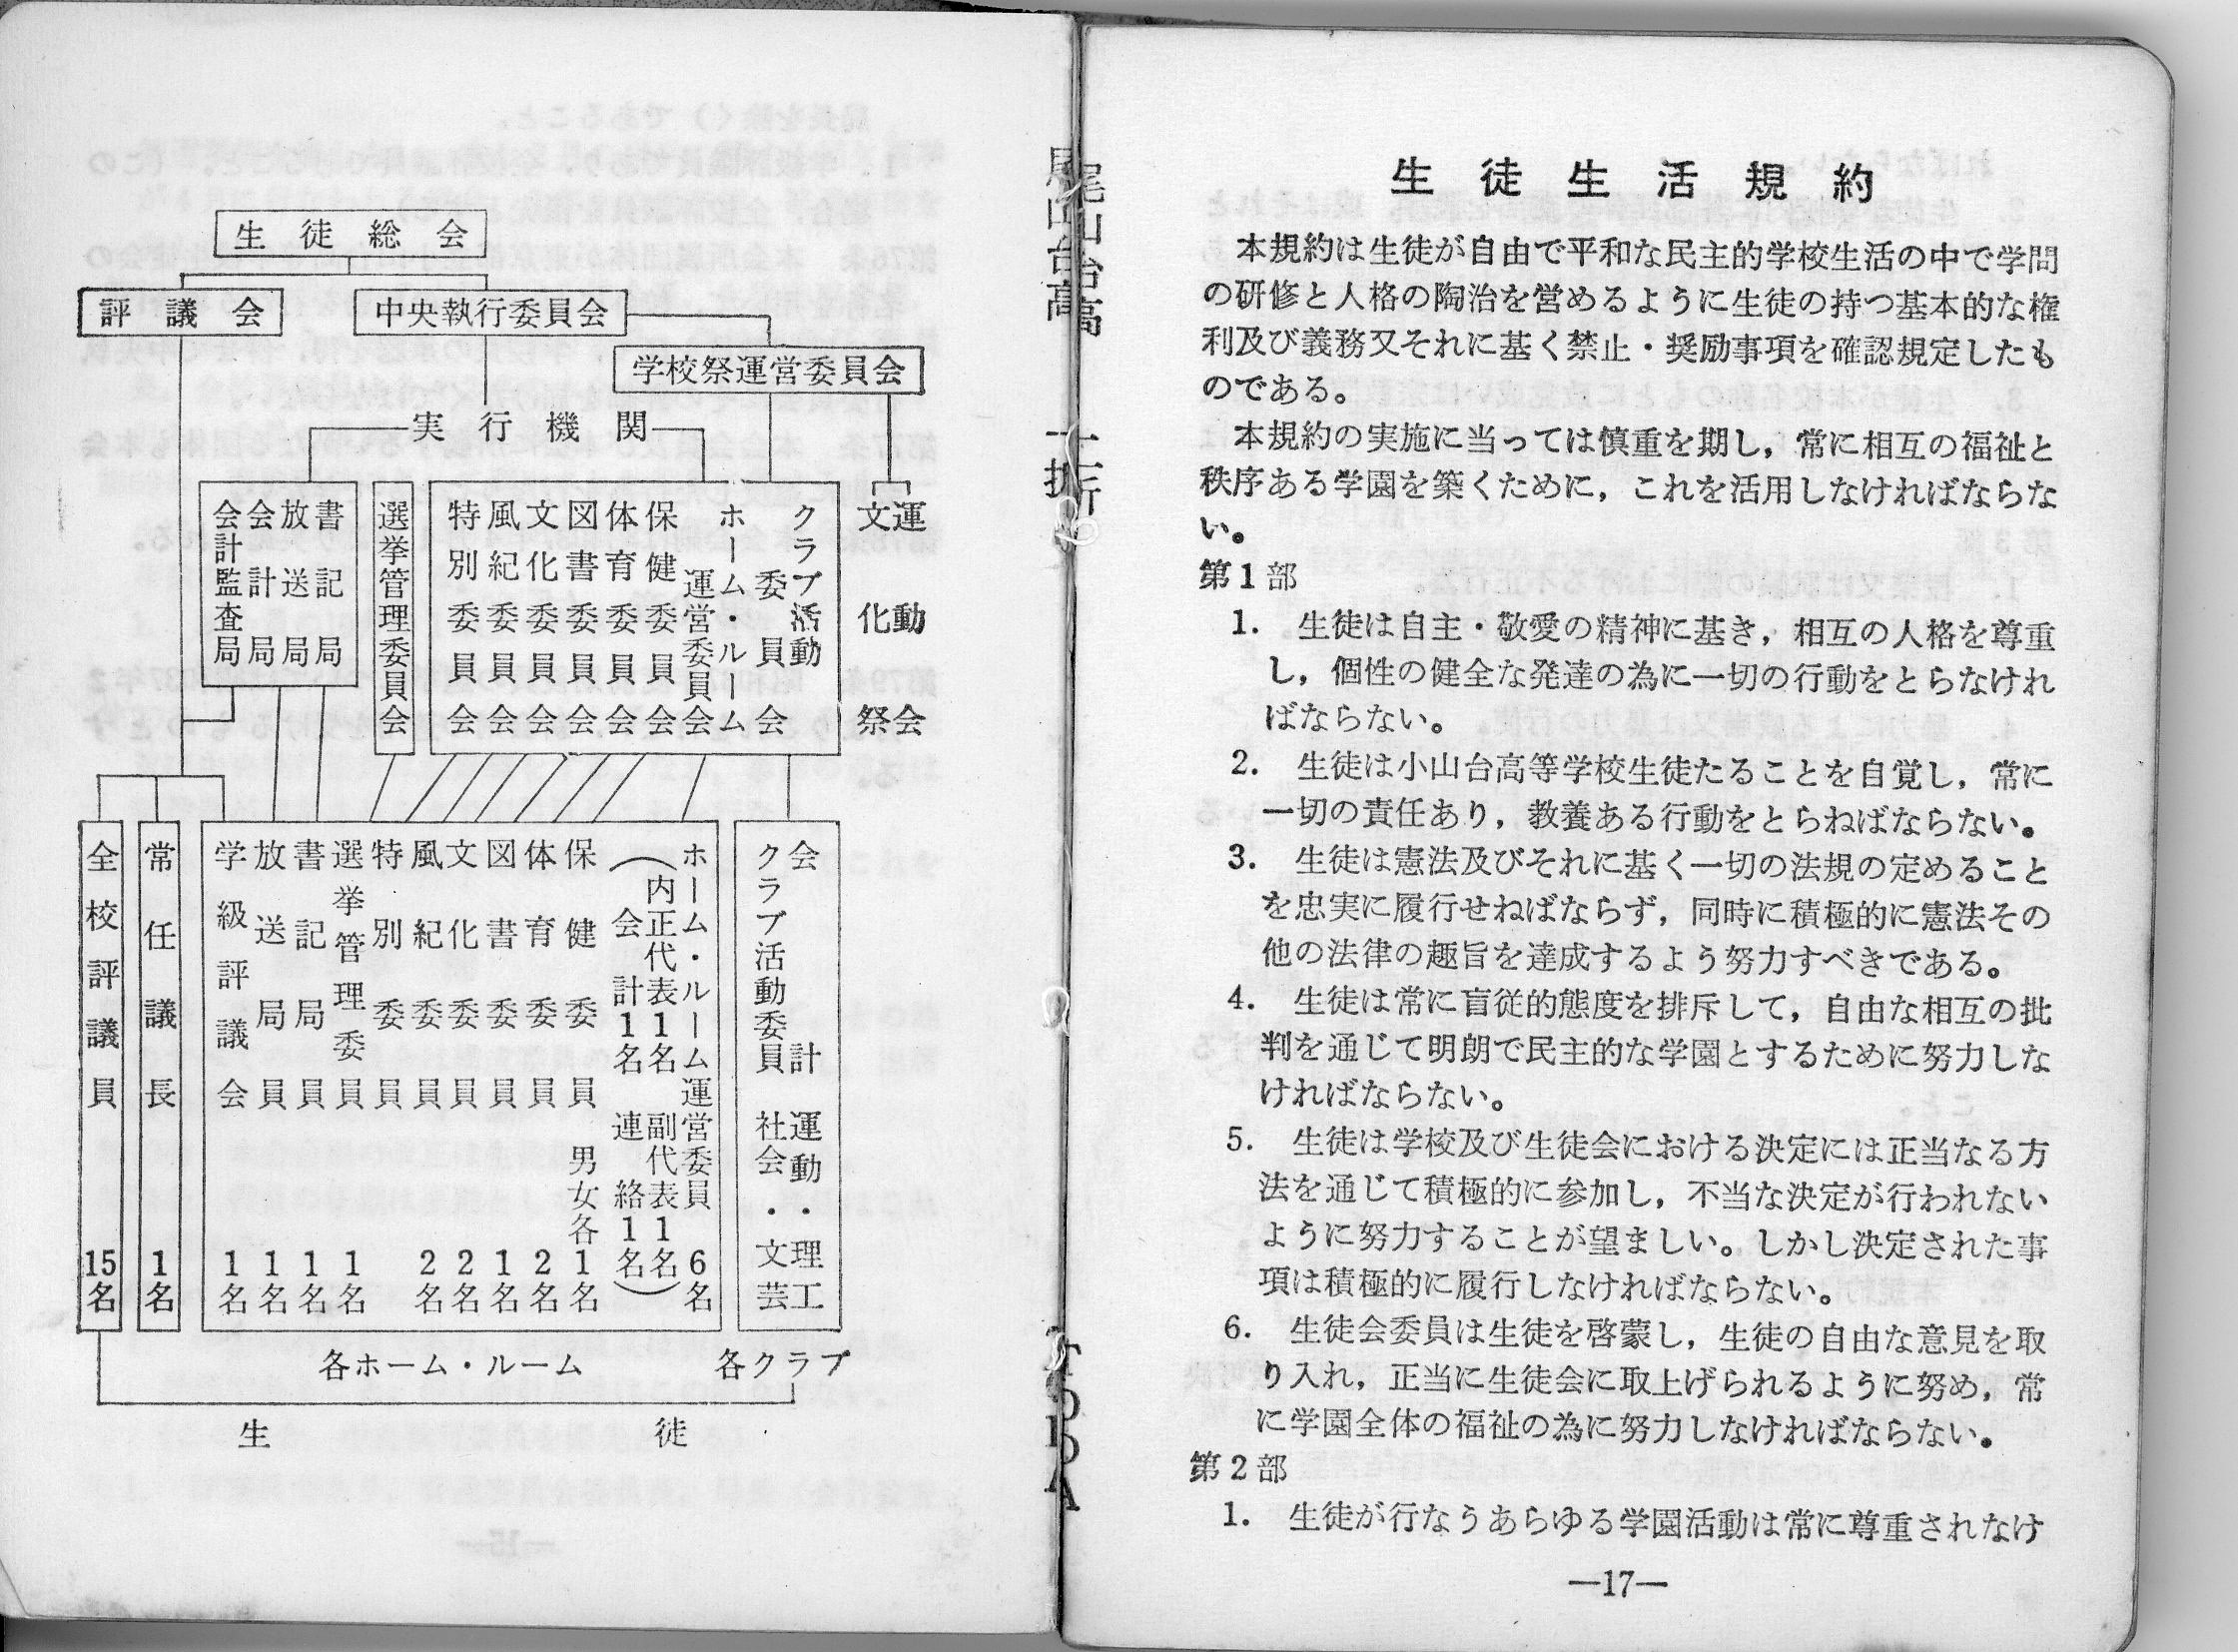 生徒総会
評議会
中央執行委員会
学校祭運営委員会
実行機関
書記局
放送局
会計局
会計監査局
選挙管理委員会
クラブ活動
委員会
ホーム・ルーム
運営委員会
保健委員会
体育委員会
図書委員会
文化委員会
風紀委員会
特別委員会
運動会
文化祭
全校評議員 15名
常任議長 1名
学級評議会 1名
放送局員 1名
書記局員 1名
選挙管理委員 1名
特別委員
風紀委員 2名
文化委員 2名
図書委員 1名
体育委員 2名
保健委員 男女各1名
ホーム・ルーム運営委員 6名
(内正代表1名 副代表1名
会計1名 連絡1名)
会計 運動・理工
クラブ活動委員 社会・文芸
各ホーム・ルーム
各クラブ
生徒
生徒生活規約
本規約は生徒が自由で平和な民主的学校生活の中で学問
の研修と人格の陶冶を営めるように生徒の持つ基本的な権
利及び義務又それに基く禁止・奨励事項を確認規定したも
のである。
本規約の実施に当っては慎重を期し，常に相互の福祉と
秩序ある学園を築くために，これを活用しなければならな
い。
第1部
1. 生徒は自主・敬愛の精神に基き，相互の人格を尊重
し，個性の健全な発達の為に一切の行動をとらなけれ
ばならない。
2. 生徒は小山台高等学校生徒たることを自覚し，常に
一切の責任あり，教養ある行動をとらねばならない。
3. 生徒は憲法及びそれに基く一切の法規の定めること
を忠実に履行せねばならず，同時に積極的に憲法その
他の法律の趣旨を達成するよう努力すべきである。
4. 生徒は常に盲従的態度を排斥して，自由な相互の批
判を通じて明朗で民主的な学園とするために努力しな
ければならない。
5. 生徒は学校及び生徒会における決定には正当なる方
法を通じて積極的に参加し，不当な決定が行われない
ように努力することが望ましい。しかし決定された事
項は積極的に履行しなければならない。
6. 生徒会委員は生徒を啓蒙し，生徒の自由な意見を取
り入れ，正当に生徒会に取上げられるように努め，常
に学園全体の福祉の為に努力しなければならない。
第2部
1. 生徒が行なうあらゆる学園活動は常に尊重されなけ
—17—